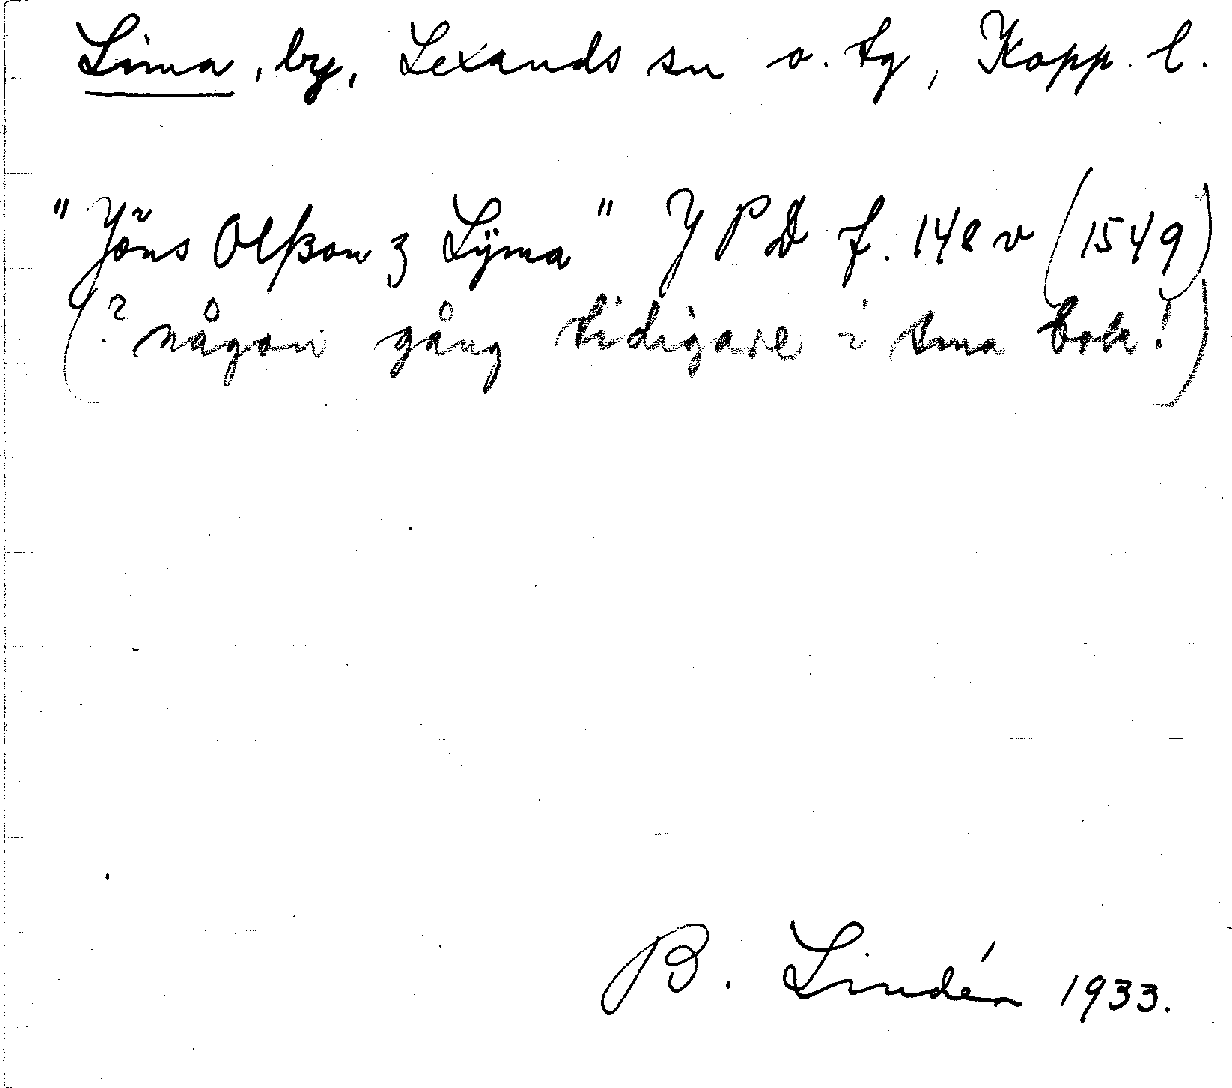 Lima, by, Lexands sn o. tg, Kopp. l.
"Jöns Olßon ʒ Lÿma" YPD f. 148 v (1549)
(? någon gång tidigare i sma bok!)
B. Lindén 1933.